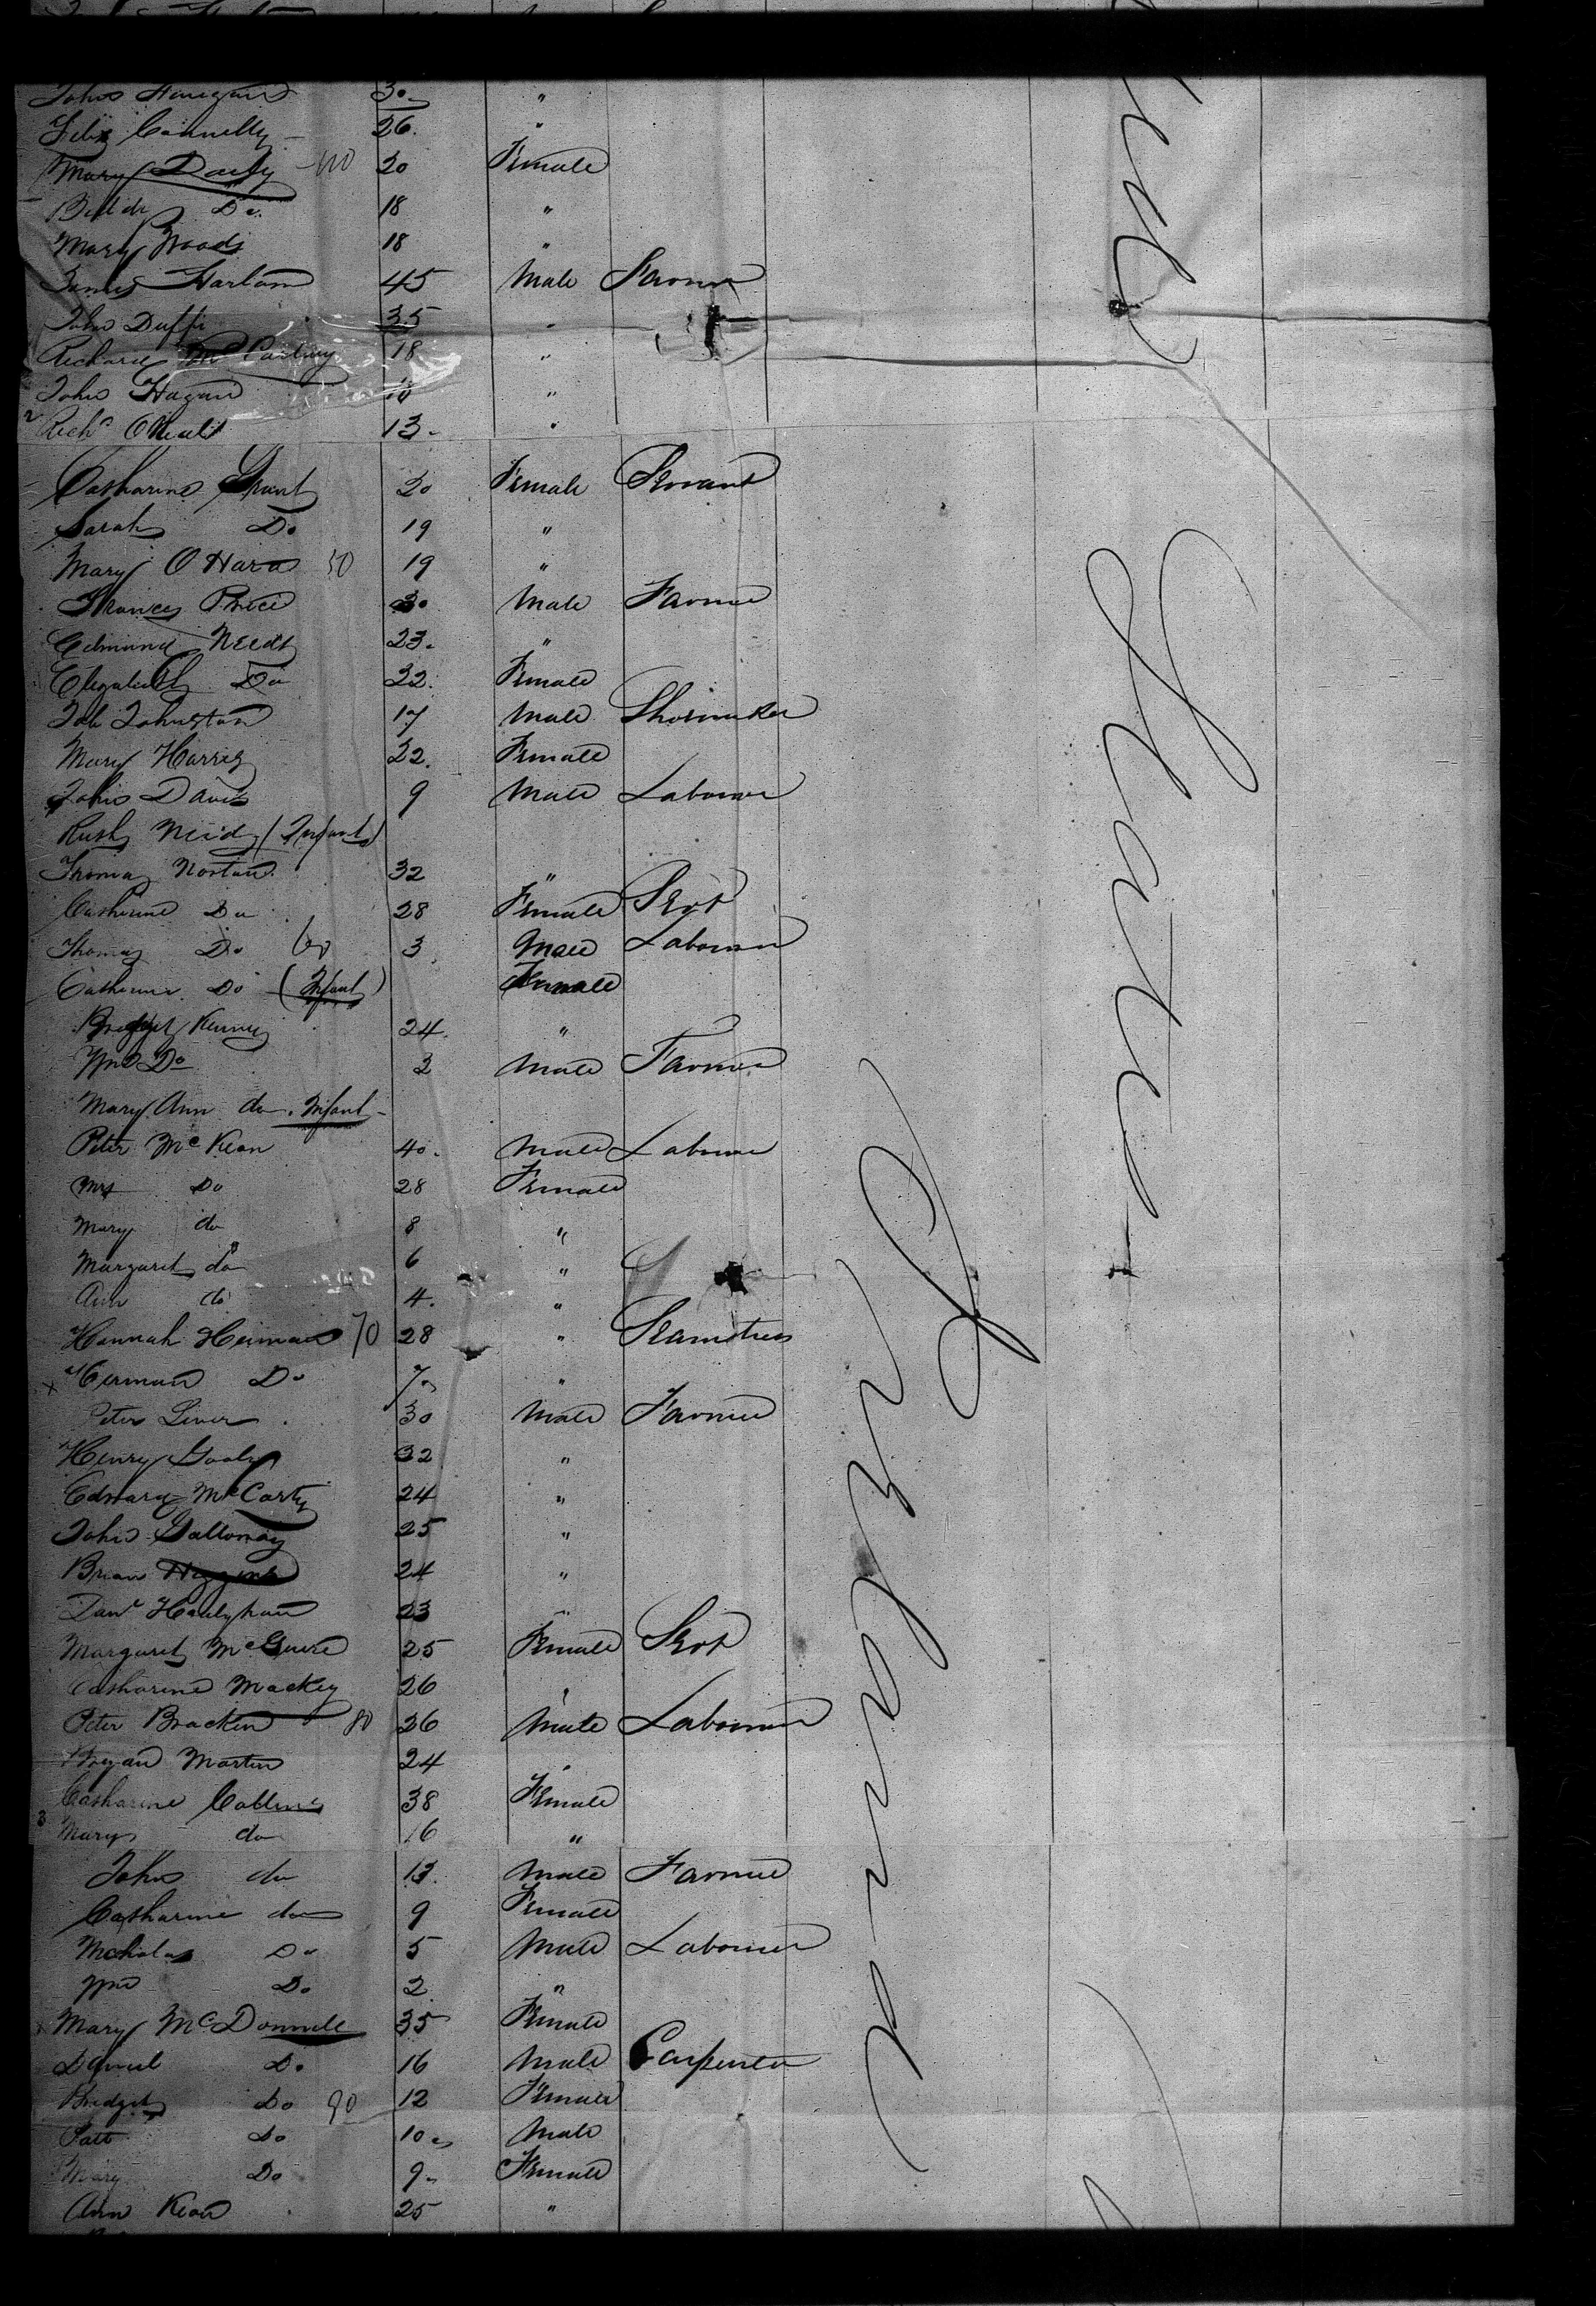 John Finegan 30 "
Felix Connelly 26 "
Mary Daily 20 Female
Do 18 "
Mary Woods 18 "
James Harlan 45 Male Farmer
John Duffy 35 "
Richard McCartney 18 "
John Hagan "
Richd 13 "
Catharine Grant 20 Female Servant
Sarah Do 19 "
Mary O Hara 50 19 "
Frances Price 30 Male Farmer
Edmund 23 "
Do 22 Female
Johnston 17 Male Shoemaker
Mary Harris 22 Female
John Davis 9 Male Labourer
(Infant)
Thomas Norton 32 "
Catherine Do 28 Female Servt
Thomas Do 60 3 Male Labourer
Catherine Do (Infant) Female
Bridget Kenney 24 "
Wm Do 2 Male Farmer
Mary Ann do. Infant
Peter McKean 40 Male Labourer
Mrs Do 28 Female
Mary do 8 "
Margaret do 6 "
Ann do 4 "
Hannah Heiman 70 28 " Seamstress
Herman Do 7 "
Peter 30 Male Farmer
Henry 32 "
Edward McCarty 24 "
John Galloway 25 "
Brian Higgins 24 "
Danl 23 "
Margaret McGuire 25 Female Servt
Catharine Mackey 26 "
Peter Bracken 80 26 Male Labourer
Bryan Martin 24 "
Catharine Collins 38 Female
3 Mary do 16 "
John do 13 Male Farmer
Catharine do 9 Female
Nicholas Do 5 Male Labourer
Wm Do 2 "
Mary McDonnell 35 Female
Daniel Do 16 Male Carpenter
Bridget Do 90 12 Female
Patt Do 10 Male
Mary Do 9 Female
Ann Kean 25 "